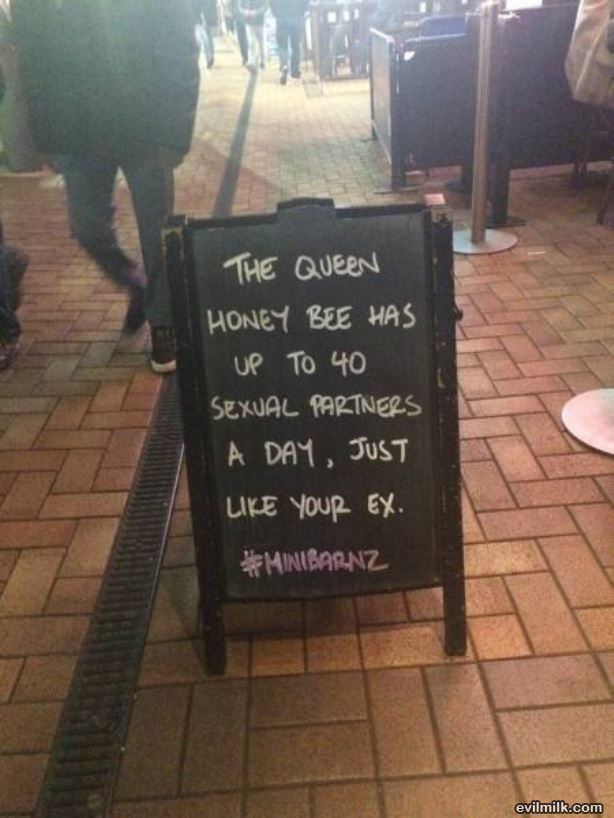 THE QUEEN
HONEY BEE HAS
UP TO 40
SEXUAL PARTNERS
A DAY, JUST
LIKE YOUR EX.
#MINIBARNZ
evilmilk.com